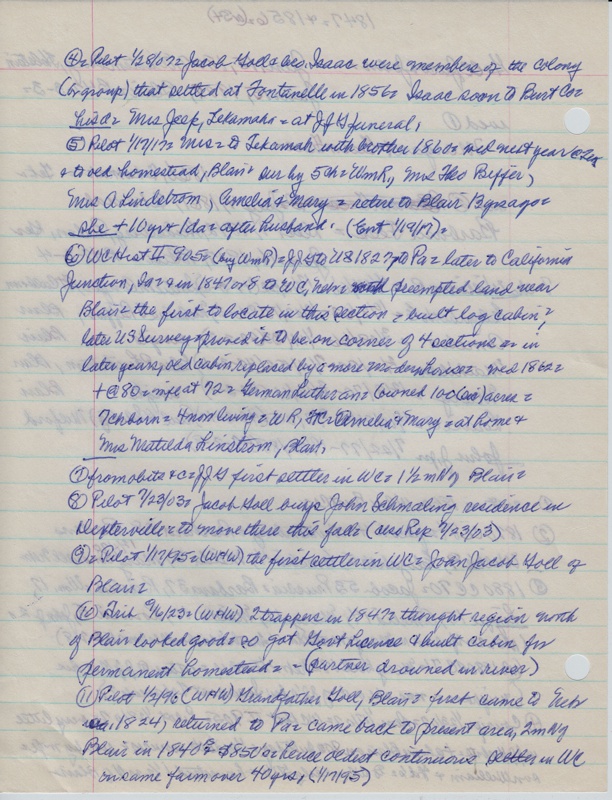 ④= Pilot 1/28/07= Jacob Goll & bro. Isaac were members of the colony
(or group) that settled at Fontanelle in 1856= Isaac soon to Burt Co=
his d= Mrs Jeep, Tekamah= at JJG funeral,
⑤ Pilot 1/17/17= Mrs= to Tekamah with brother 1860= wed next year
& to ved homestead, Blair= sur by 5 ch= WmR, Mrs Theo Pfiffer,
Mrs A Lindstrom, Amelia & Mary= retire to Blair 13 yrs ago=
she + 10 yr & 1 da= after husband. (Ent 1/19/17)=
⑥ WC Hist II 905= (by WmR)= JJG to US 1827 to Pa= later to California
Junction, Ia= & in 1847 or 8 to WC, Neb= preempted land near
Blair= the first to locate in this section= built log cabin=
later US Survey proved it to be on corner of 4 sections= & in
later years, old cabin replaced by a more modern house= wed 1862=
+ @ 80= wife at 72= German Lutherans (owned 100 (ac) acre=
7 ch born= 4 now living= WR, Amelia & Mary= at home &
Mrs Matilda Linstrom, Blair,
⑦ from obits &c= JJG first settler in WC= 1½ m N of Blair=
⑧ Pilot 7/23/03= Jacob Goll buys John Schmaling residence in
Dexterville= to move there this fall= (also Rep 7/23/03)
⑨= Pilot 1/17/95= (WHW) the first settler in WC= John Jacob Goll of
Blair=
⑩ Trib 9/6/23= (WHW) 2 trappers in 1847= thought region north
of Blair looked good= so got Govt License & built cabin for
permanent homestead= = (partner drowned in river)
⑪ Pilot 1/2/96 (WHW) Grandfather Goll, Blair= first came to Neb
1824, returned to Pa= came back to present area, 2m N of
Blair in 1840? - 1850= hence oldest continuous settler in WC
on same farm over 40 yrs, (1/17/95)